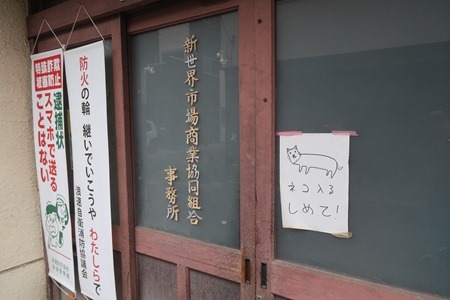 特殊詐欺
被害防止
逮捕状
スマホで送る
ことはない
防火の輪 継いでいこうや わたしらで
浪速自衛消防協議会
新世界市場商業協同組合
事務所
ネコ入る
しめて!